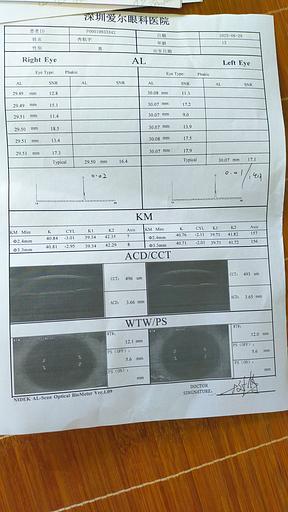 深圳爱尔眼科医院
患者ID P00019933342 日期 2023-08-20
姓名 年龄 13
性别 男 出生日期
Right Eye AL Left Eye
Eye Type: Phakic Eye Type: Phakic
AL SNR AL SNR AL SNR AL SNR
29.49 mm 12.8 30.08 mm 11.3
29.49 mm 15.1 30.07 mm 17.2
29.51 mm 11.4 30.07 mm 9.0
29.50 mm 18.5 30.07 mm 13.9
29.51 mm 13.4 30.08 mm 17.5
29.51 mm 17.3 30.07 mm 17.9
Typical 29.50 mm 16.4 Typical 30.07 mm 17.1
0.02
KM
KM Mire K CYL K1 K2 Axis KM Mire K CYL K1 K2 Axis
Φ2.4mm 40.84 -3.01 39.34 42.35 7 Φ2.4mm 40.76 -2.11 39.71 41.82 157
Φ3.3mm 40.81 -2.95 39.34 42.29 8 Φ3.3mm 40.71 -2.01 39.71 41.72 156
ACD/CCT
CCT: 496 um CCT: 493 um
ACD: 3.66 mm ACD: 3.65 mm
WTW/PS
WTW: 12.1 mm WTW: 12.0 mm
PS (OFF): 5.6 mm PS (OFF): 5.6 mm
PS (ON): mm PS (ON): mm
NIDEK AL-Scan Optical BioMeter Ver.1.09
DOCTOR
SINGNATURE: